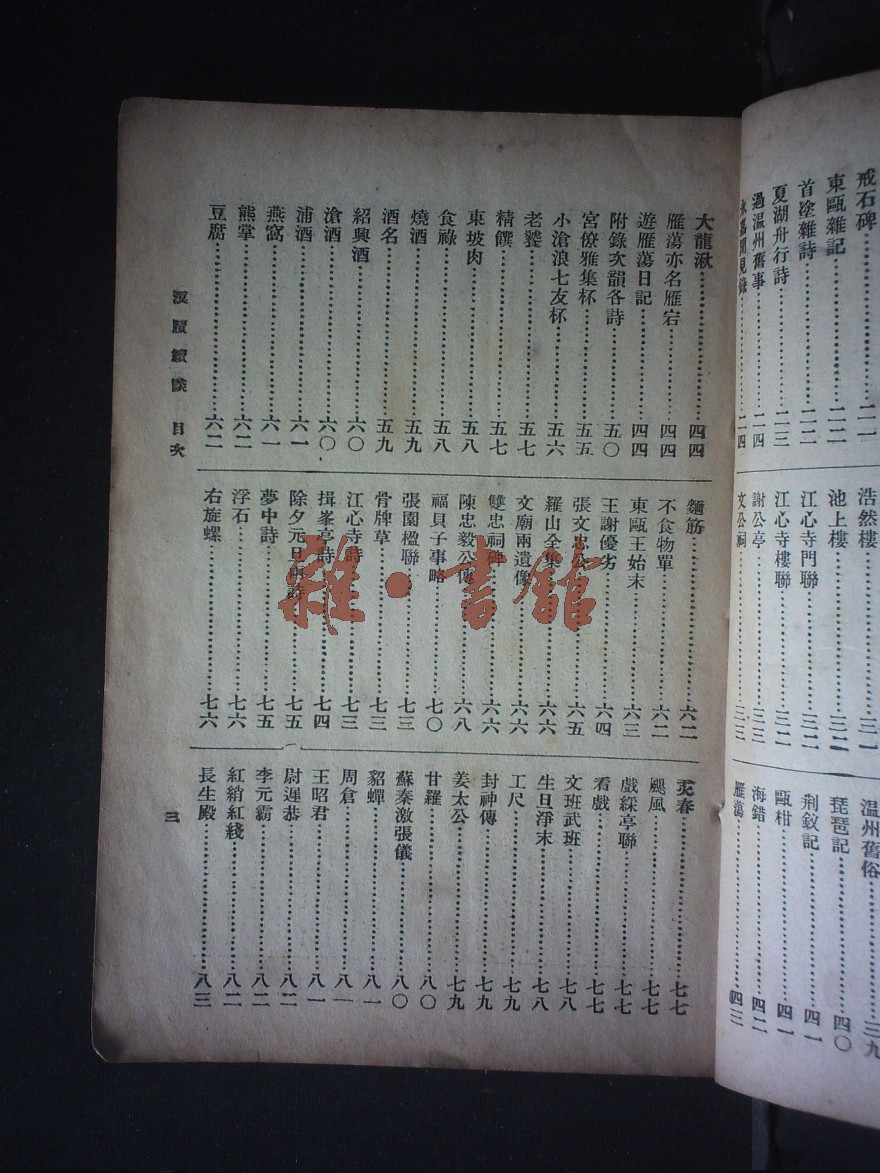 戒石碑……二一
東甌雜記……二二
首塗雜詩……二二
夏湖舟行詩……二三
過温州舊事……二四
永嘉聞見錄……二四
浩然樓……三一
池上樓……三二
江心寺門聯……三二
江心寺樓聯……三二
謝公亭……三三
文公祠……三三
温州舊俗……三九
琵琶記……四〇
荆釵記……四一
甌柑……四一
海錯……四二
雁蕩……四三
大龍湫……四四
雁蕩亦名雁宕……四四
遊雁蕩日記……四四
附錄次韻各詩……五〇
宮僚雅集杯……五五
小滄浪七友杯……五六
老饕……五七
精饌……五七
東坡肉……五八
食祿……五八
燒酒……五九
酒名……五九
紹興酒……六〇
滄酒……六〇
浦酒……六一
燕窩……六一
熊掌……六二
豆腐……六二
麵筋……六二
不食物單……六二
東甌王始末……六三
王謝優劣……六四
張文忠公……六五
羅山全集……六六
文廟兩遺像……六六
雙忠祠碑……六六
陳忠毅公傳……六八
福貝子事略……七〇
張園楹聯……七三
骨牌草……七三
江心寺詩……七三
揖峯亭詩……七四
除夕元旦兩詩……七五
夢中詩……七五
浮石……七六
右旋螺……七六
春……七七
颶風……七七
戲綵亭聯……七七
看戲……七七
文班武班……七八
生旦淨末……七八
工尺……七九
封神傳……七九
姜太公……七九
甘羅……八〇
蘇秦激張儀……八〇
貂蟬……八一
周倉……八一
王昭君……八一
尉遲恭……八二
李元霸……八二
紅綃紅綫……八二
長生殿……八三
浪跡續談　目次
三
雜·書館